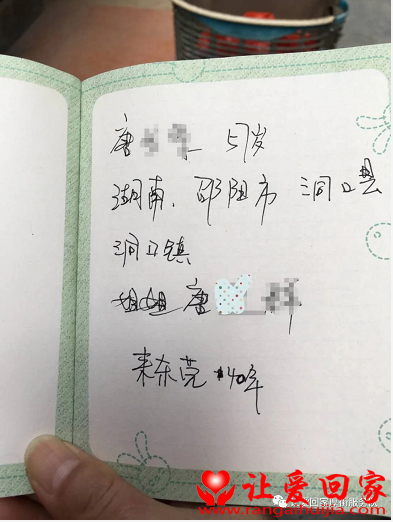 唐 57岁
湖南.邵阳市 洞口县
洞口镇
姐姐 唐
来东莞 40年
回家厚街服务队
让爱回家
www.rangaihuijia.com